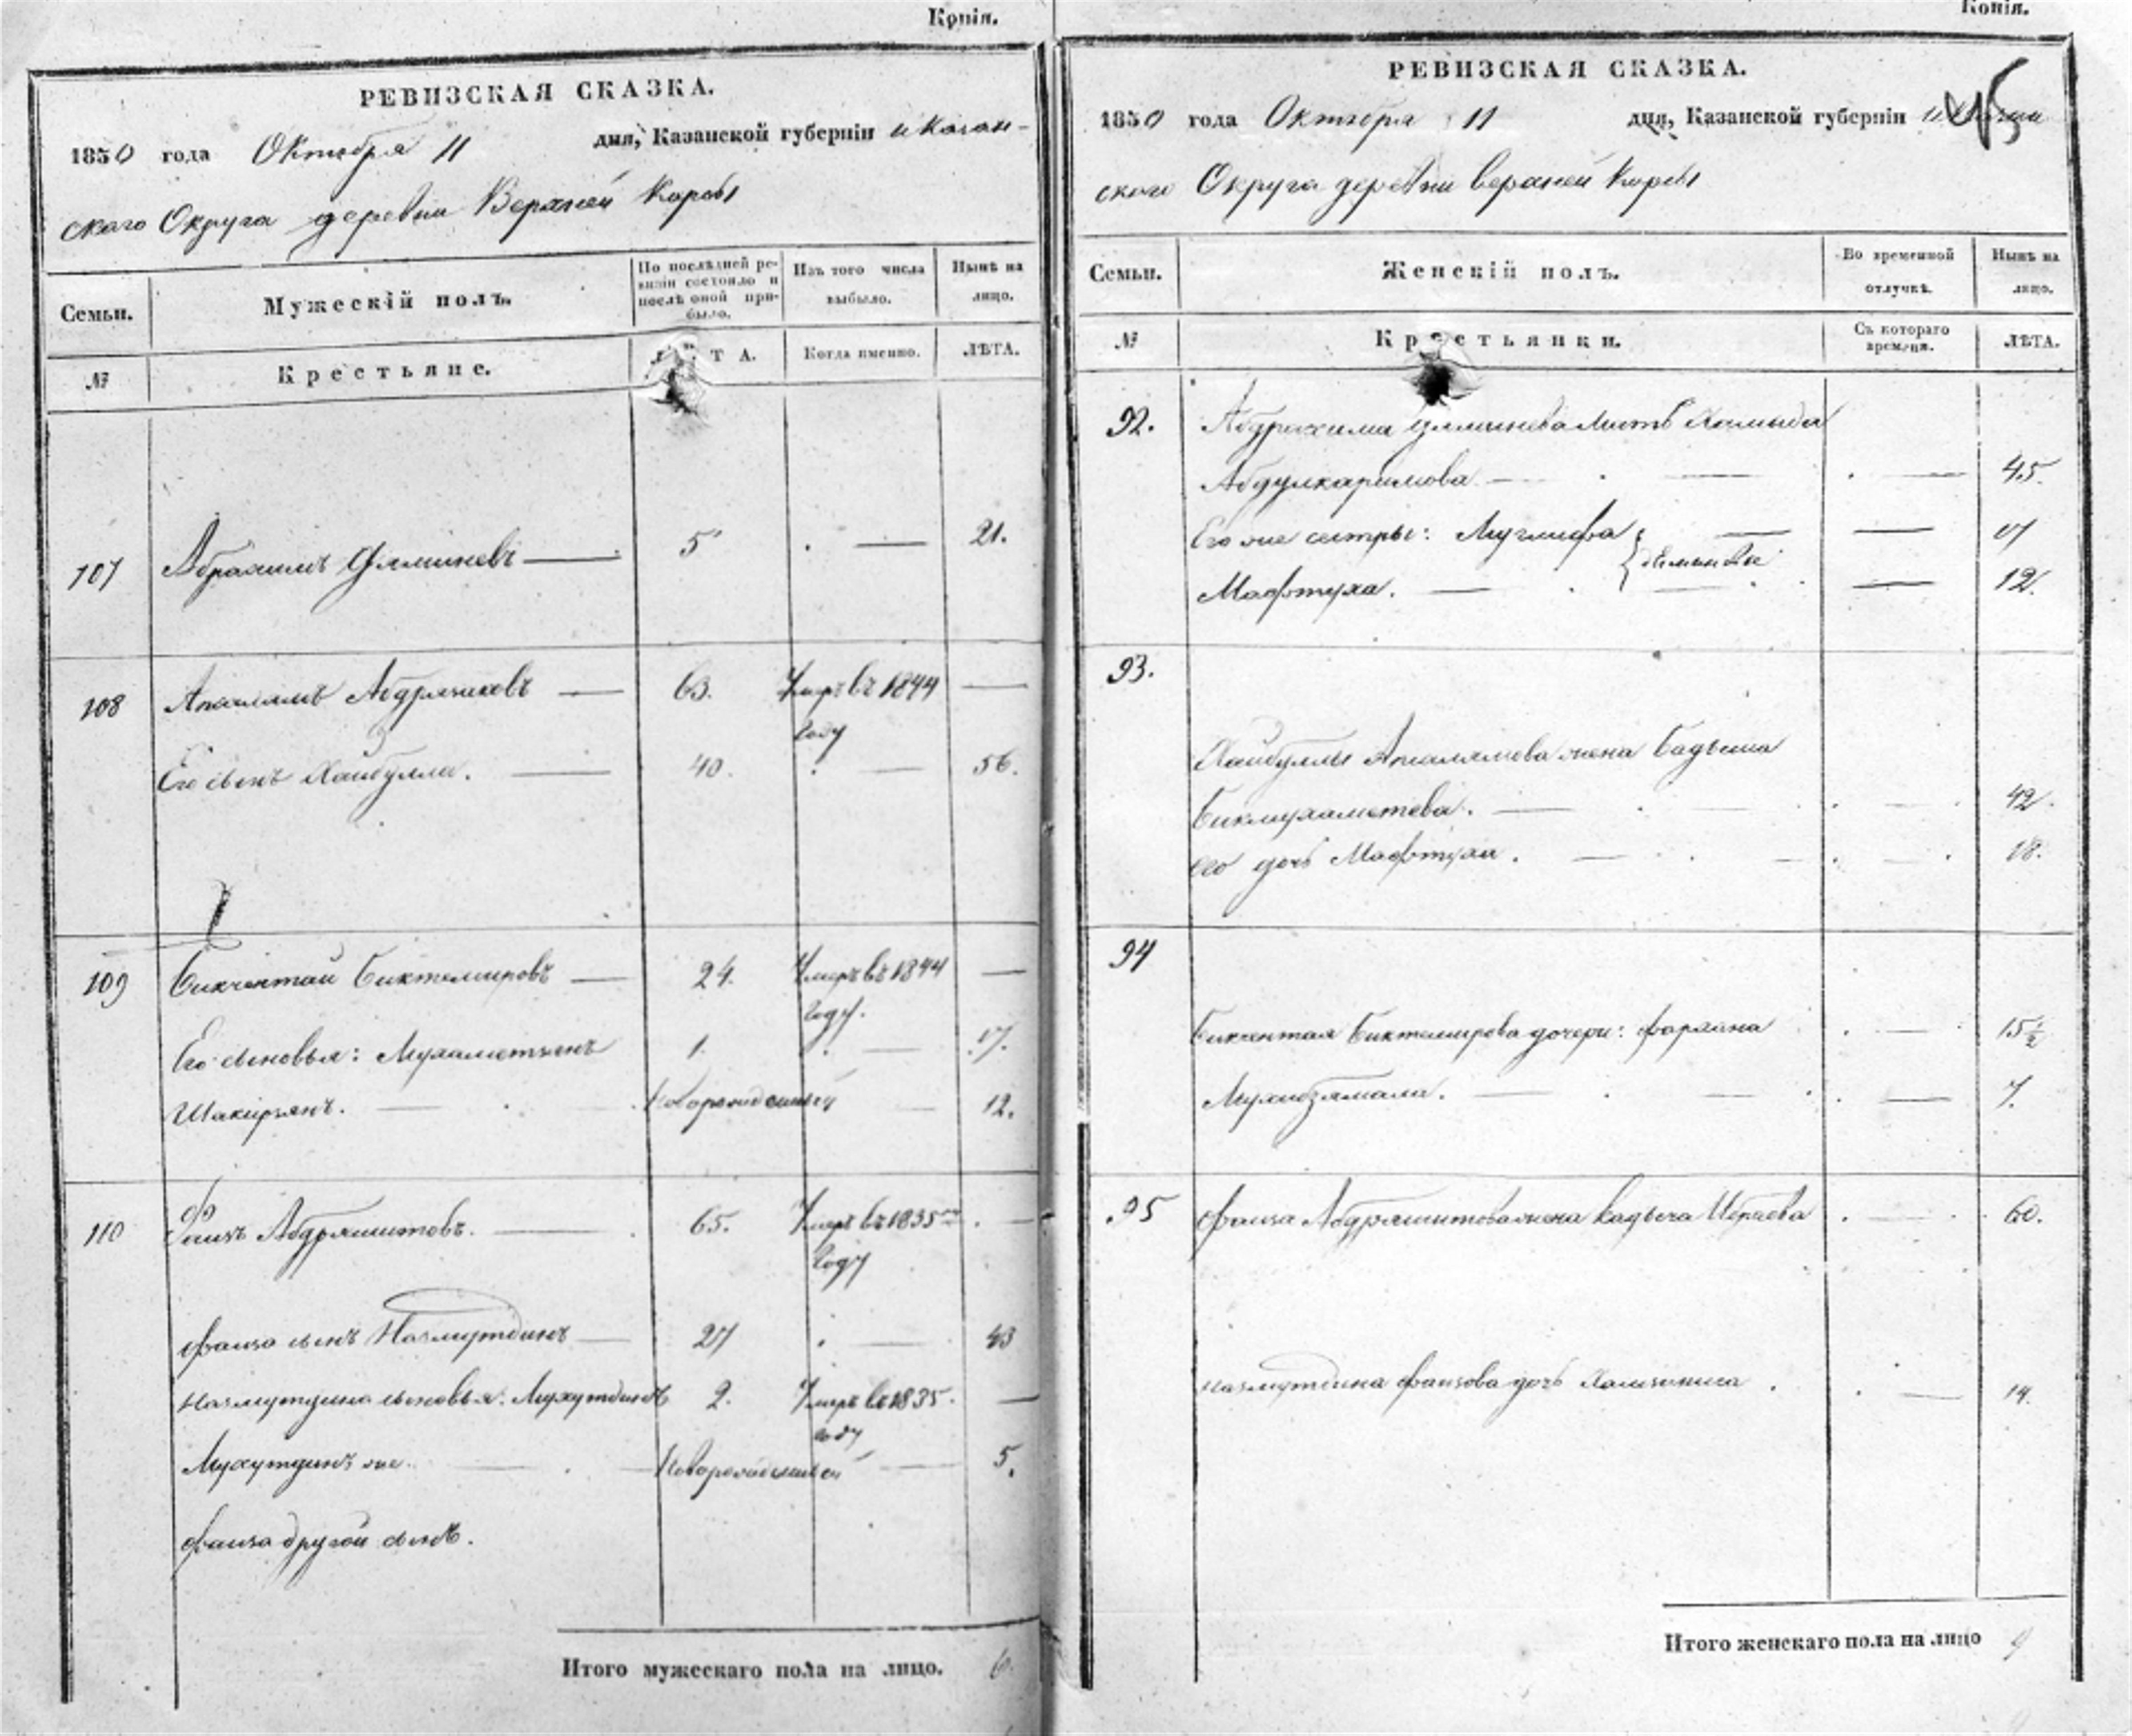 Копія.
РЕВИЗСКАЯ СКАЗКА.
1850 года Октября 11 дня, Казанской губерніи и Казан-
скаго Округа деревни Верхней Корсы
Семьи.
Мужескій полъ.
По послѣдней ре-
визіи состояло и
послѣ оной при-
было.
Изъ того числа
выбыло.
Нынѣ на
лицо.
№
Крестьяне.
ЛѢТА.
Когда именно.
ЛѢТА.
107 Абрахимъ 5 . — 21.
108 63. Умеръ въ 1844 —
году
Его сынъ Хайбулла. — 40. . — 56.
109 Бикчентай Биктемировъ — 24. Умеръ въ 1844 —
году.
Его сыновья: Мухаметзянъ 1. . — 17.
Шакирзянъ. — Новорожденный — 12.
110 Фаизъ Абдряшитовъ. — 65. Умеръ въ 1835 —
году
Фаиза сынъ Назмутдинъ — 27 . — 43
Назмутдина сыновья: Мухутдинъ 2. Умеръ въ 1835. —
году
Мухутдинъ же. — Новорожденный — 5.
Фаиза другой сынъ.
Итого мужескаго пола на лицо. 6.
Копія.
РЕВИЗСКАЯ СКАЗКА.
1850 года Октября 11 дня, Казанской губерніи и
скаго Округа деревни Верхней Корсы
Семьи.
Женскій полъ.
Во временной
отлучкѣ.
Нынѣ на
лицо.
№
Крестьянки.
Съ котораго
времени.
ЛѢТА.
92. Абдрахима мать Хамыда
Абдулкаримова — 45.
Его же сестры: — 17
Мафтуха. — 12.
93.
Хайбуллы жена Бадъша
Бикмухаметева. — 42.
его дочь Мафтуха. — 18.
94
Бикчентая Биктемирова дочери: Фархана . — 15½
Мухибзямала. — 7.
95 Фаиза Абдряшитова жена Кадыча Ибраева . — 60.
Назмутдина Фаизова дочь . — 14.
Итого женскаго пола на лицо 9